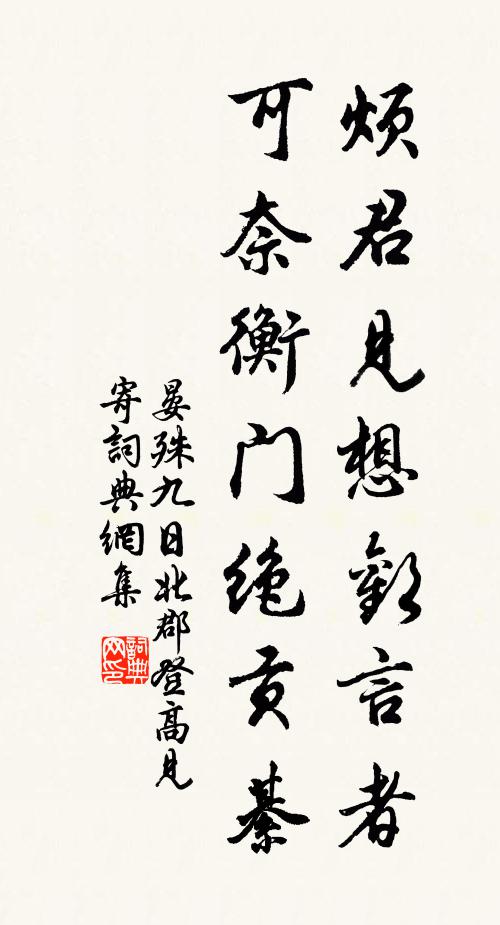 烦君見想歡言者
可奈衡门绝贡綦
晏殊九日北郡登高見
寄詞典網集
詞典
网印